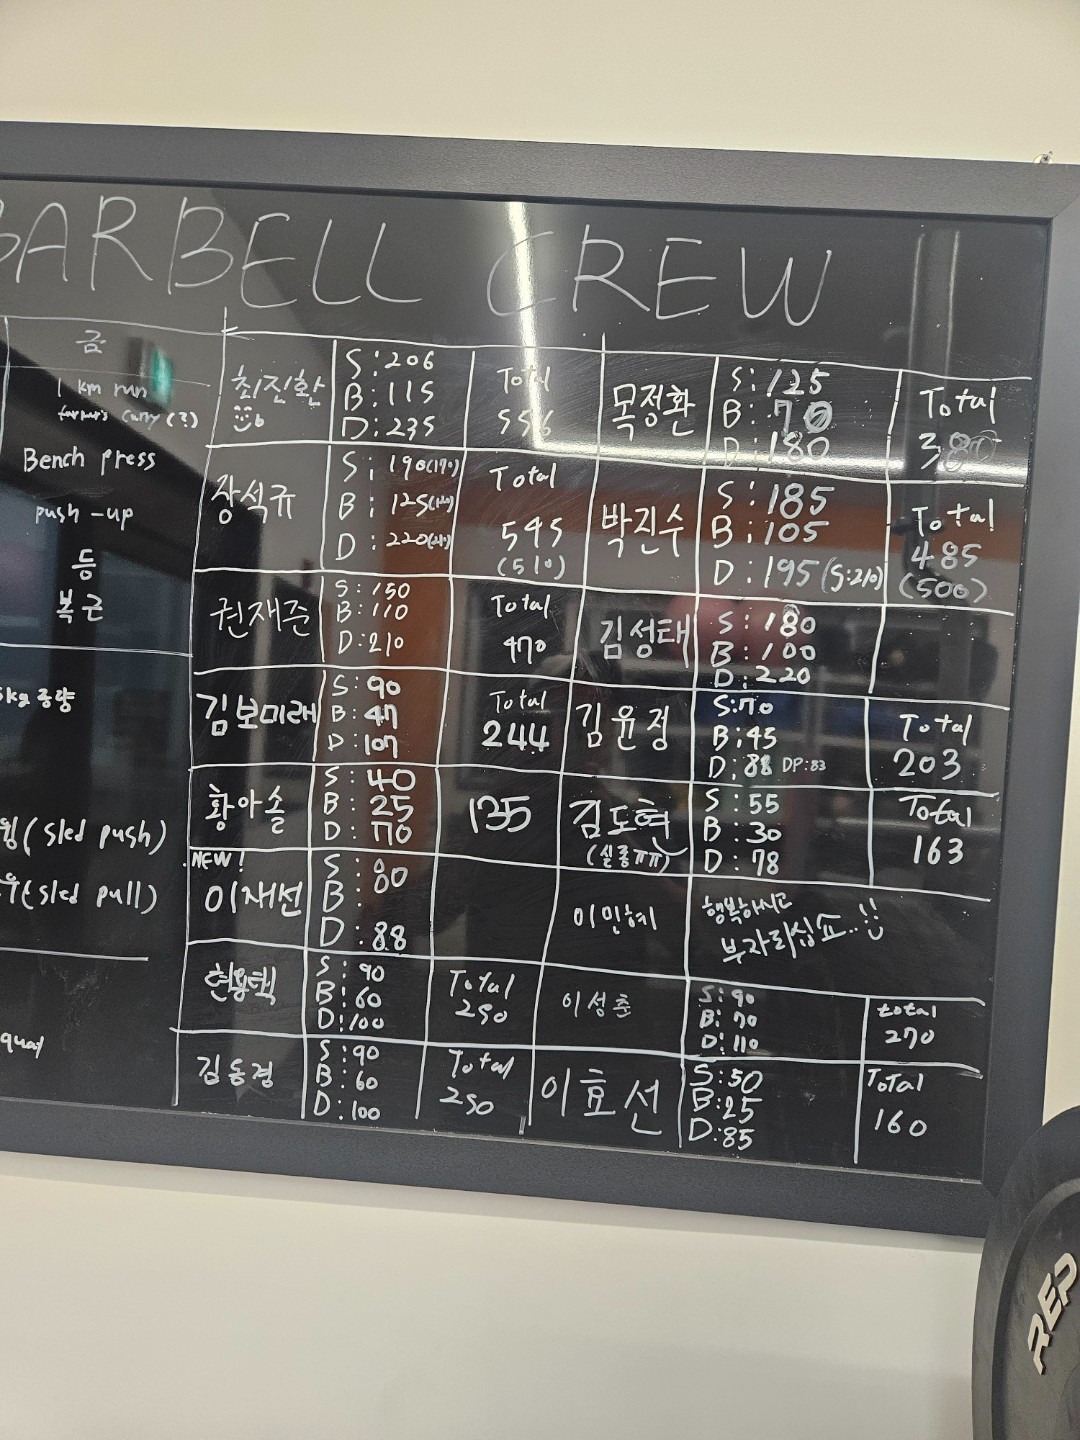 BARBELL CREW
금
1 km run
farmer's carry (3)
Bench press
push-up
등
복근
5kg 중량
(sled push)
(sled pull)
최진환
S:206
B:115
D:235
Total
556
목정환
S:125
B:70
D:180
Total
380
장석규
S:190(170)
B:125
D:220
Total
545
(510)
박진수
S:185
B:105
D:195(S:210)
Total
485
(500)
권재준
S:150
B:110
D:210
Total
470
김성태
S:180
B:100
D:220
김보미래
S:90
B:47
D:107
Total
244
김윤정
S:70
B:45
D:88 DP:83
Total
203
황아솔
S:40
B:25
D:70
135
김도혁
(실종ㅠㅠ)
S:55
B:30
D:78
Total
163
NEW!
이재선
S:80
B:
D:88
이민혜
행복하시고
부자되십쇼..
현용택
S:90
B:60
D:100
Total
250
이성춘
S:90
B:70
D:110
total
270
김동경
S:90
B:60
D:100
Total
250
이효선
S:50
B:25
D:85
Total
160
REP